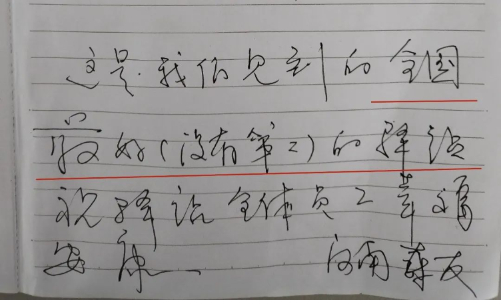 这是我们见到的全国
最好(没有第二)的驿站
祝驿站全体员工幸福
安康 河南车友